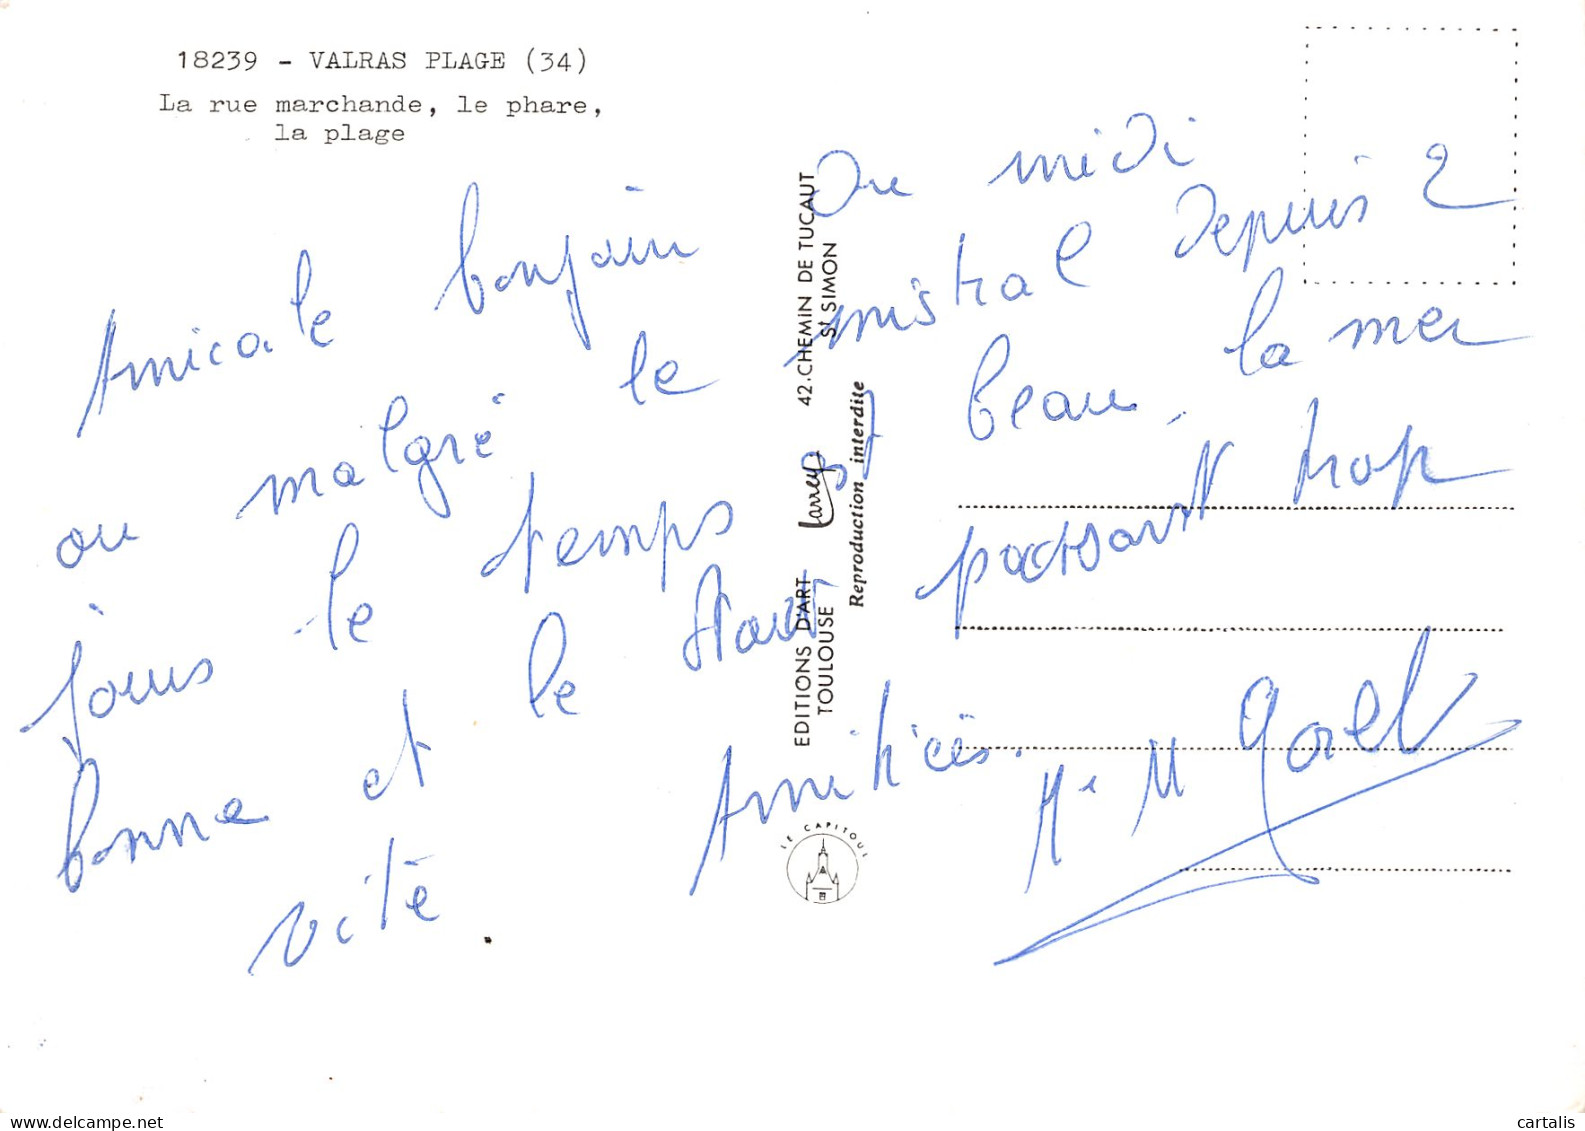 18239 - VALRAS PLAGE (34)
La rue marchande, le phare,
la plage
Amicale bonjour du midi
ou malgré le mistral depuis 2
jours le temps est beau, la mer
bonne et le passant trop
vite.
Amitiés.
M. M
EDITIONS D'ART Larrey 42. CHEMIN DE TUCAUT
TOULOUSE St SIMON
Reproduction interdite
LE CAPITOUL
cartalis
delcampe.net